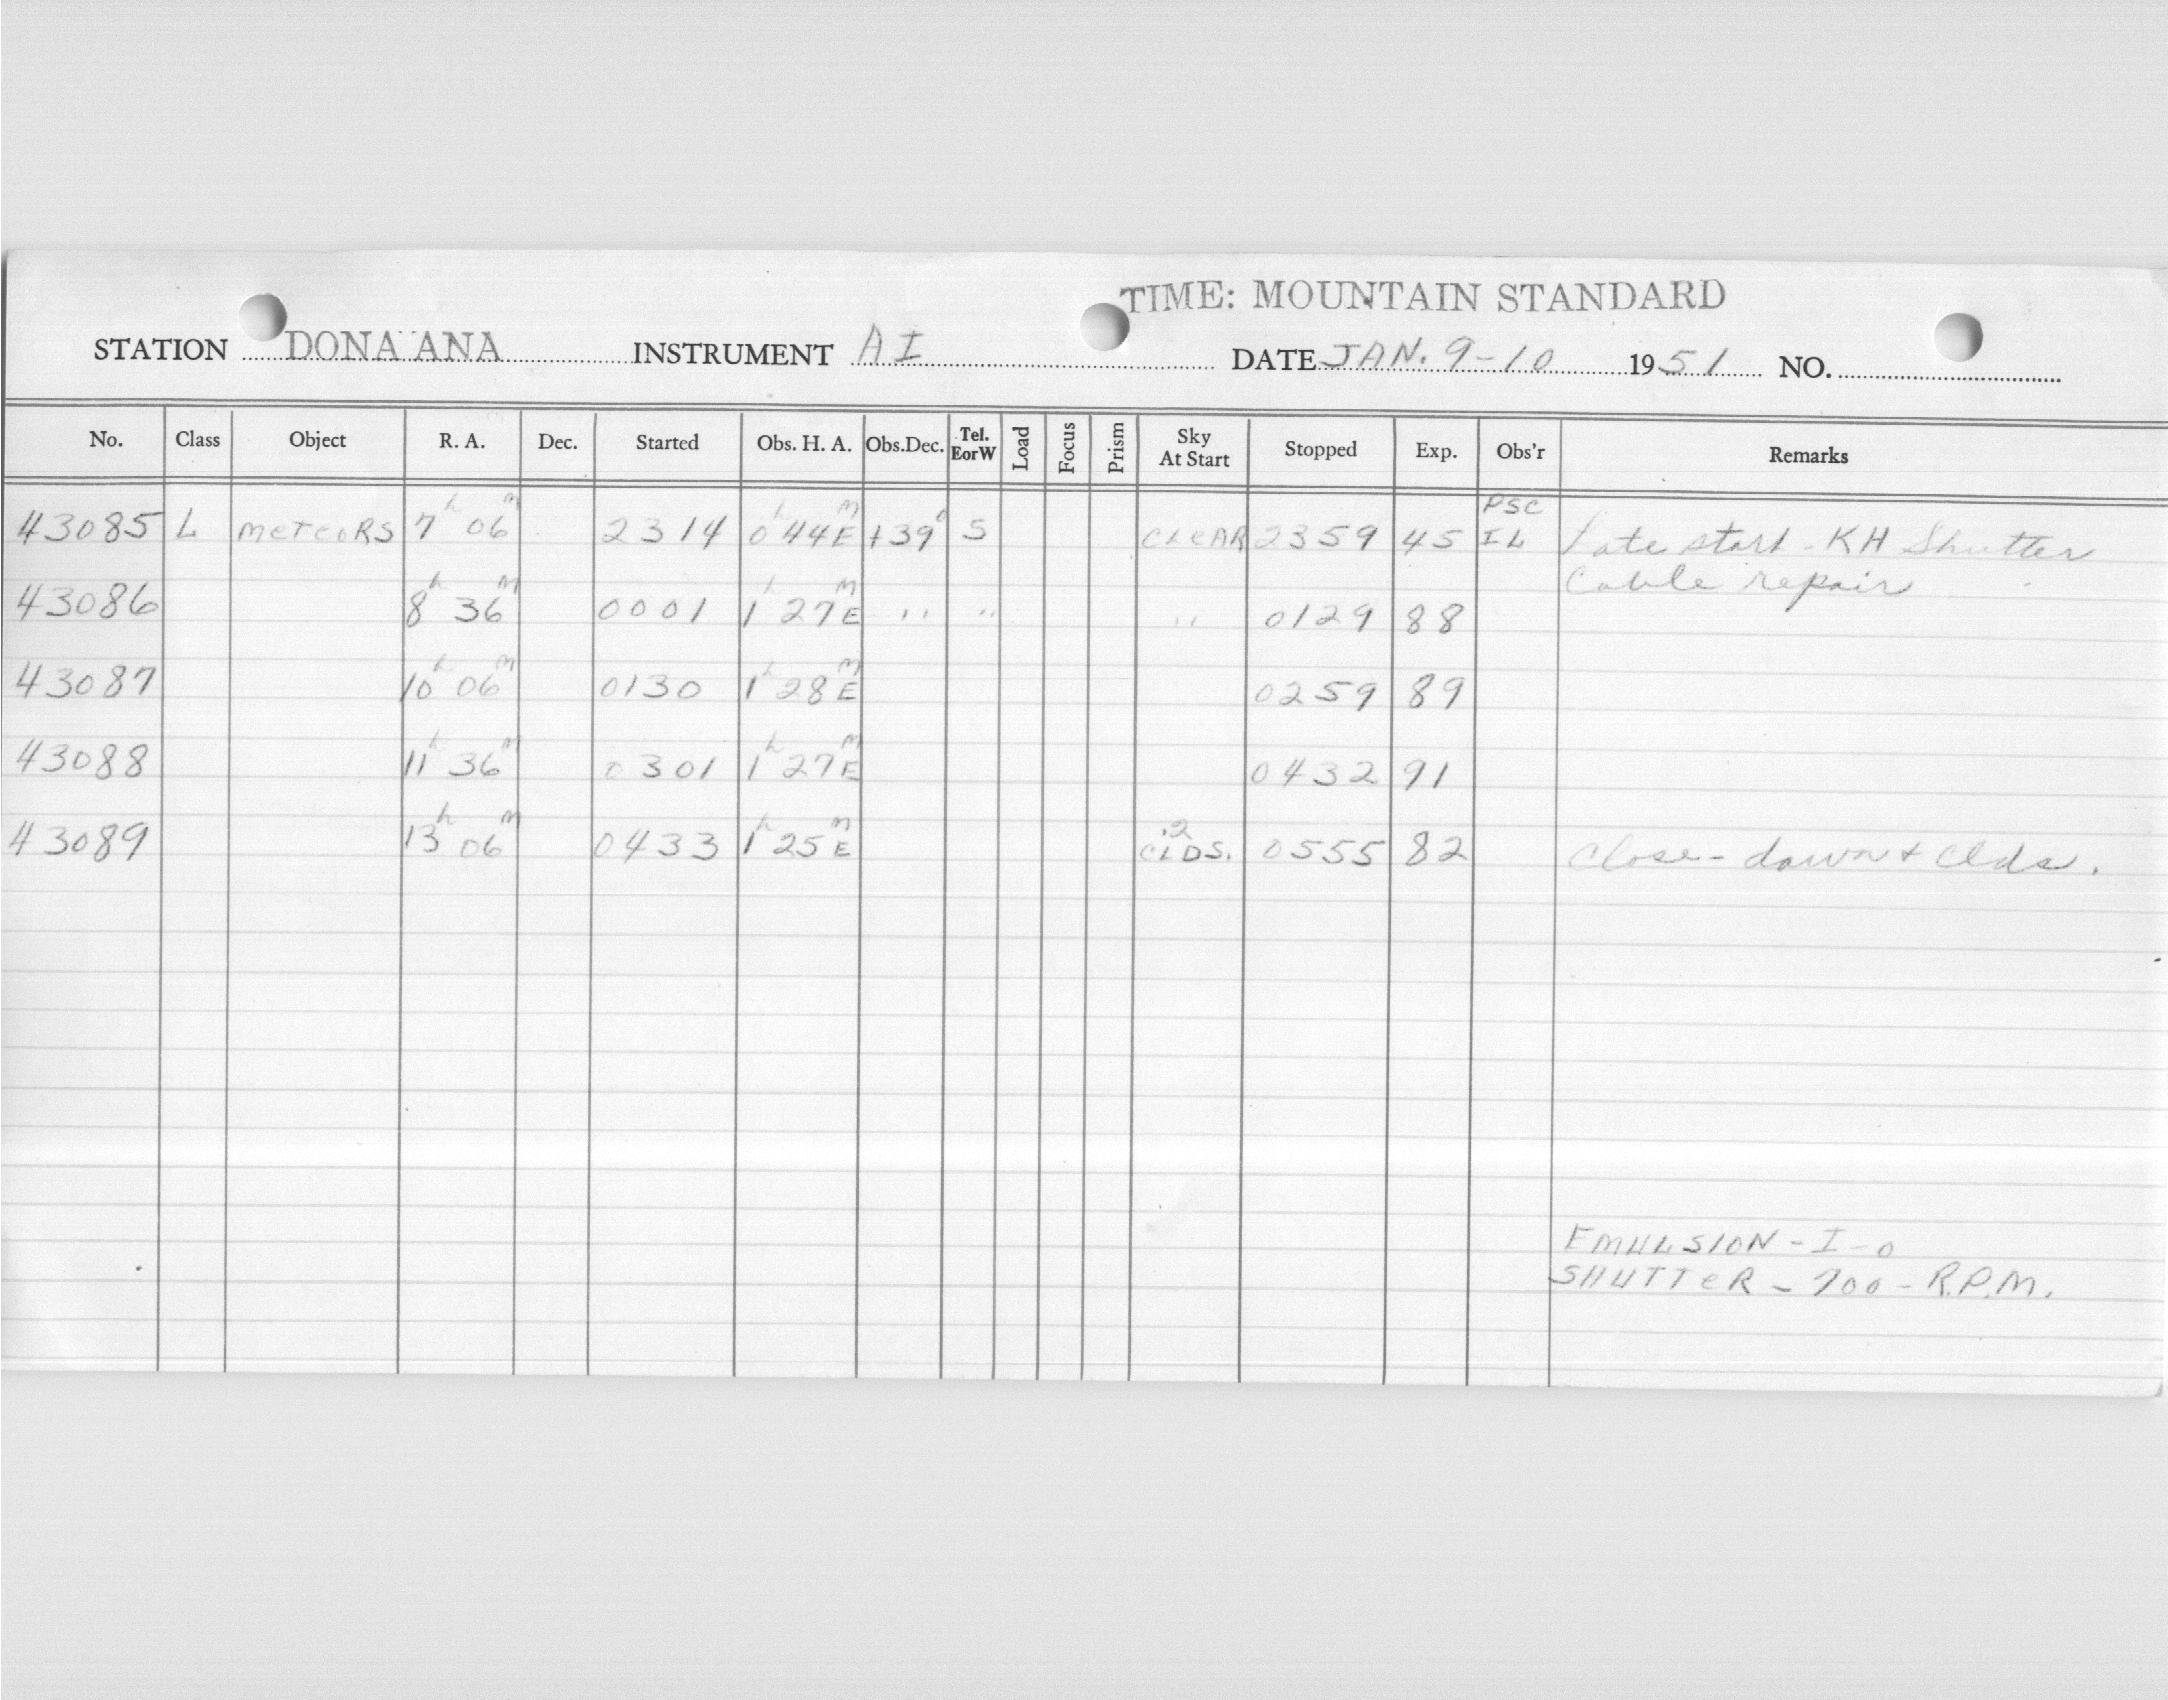 TIME: MOUNTAIN STANDARD
STATION DONA ANA INSTRUMENT AI DATE JAN. 9-10 1951 NO.
No. Class Object R. A. Dec. Started Obs. H. A. Obs.Dec. Tel. EorW Load Focus Prism Sky At Start Stopped Exp. Obs'r Remarks
43085 L METEORS 7h 06m 2314 0h 44m E +39° S CLEAR 2359 45 PSC IL Late start - KH Shutter
Cable repair
43086 8h 36m 0001 1h 27m E " " " 0129 88
43087 10h 06m 0130 1h 28m E 0259 89
43088 11h 36m 0301 1h 27m E 0432 91
43089 13h 06m 0433 1h 25m E .2 CLDS. 0555 82 Close-down + Clds.
EMULSION - I - O
SHUTTER - 700 - R.P.M.